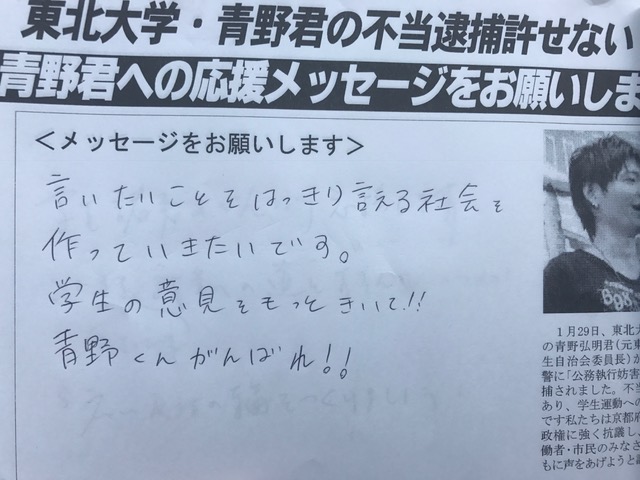 東北大学・青野君の不当逮捕許せない
青野君への応援メッセージをお願いしま
＜メッセージをお願いします＞
言いたいことをはっきり言える社会を
作っていきたいです。
学生の意見をもっときいて!!
青野くんがんばれ!!
1月29日、東北大
の青野弘明君(元東
生自治会委員長)が
警に「公務執行妨害
捕されました。不
あり、学生運動への
です私たちは京都府
政権に強く抗議し、
働者・市民のみなさ
もに声をあげようと